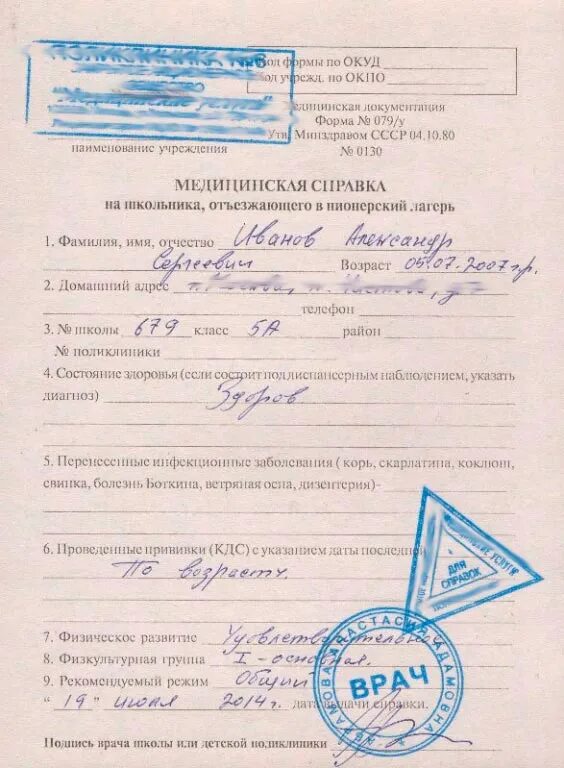 ПОЛИКЛИНИКА №
Код формы по ОКУД
Код учрежд. по ОКПО
Медицинская документация
Форма № 079/у
Утв. Минздравом СССР 04.10.80
№ 0130
наименование учреждения
МЕДИЦИНСКАЯ СПРАВКА
на школьника, отъезжающего в пионерский лагерь
1. Фамилия, имя, отчество Иванов Александр
Сергеевич Возраст 05.07.2007г.р.
2. Домашний адрес
телефон
3. № школы 679 класс 5А район
№ поликлиники
4. Состояние здоровья (если состоит под диспансерным наблюдением, указать
диагноз) Здоров
5. Перенесенные инфекционные заболевания ( корь, скарлатина, коклюш,
свинка, болезнь Боткина, ветряная оспа, дизентерия)-
6. Проведенные прививки (КДС) с указанием даты последней
По возрасту.
ДЛЯ
СПРАВОК
7. Физическое развитие Удовлетворительное
8. Физкультурная группа I - основная.
9. Рекомендуемый режим Общий
" 19 " июля 2014г. дата выдачи справки.
ВРАЧ
Подпись врача школы или детской поликлиники